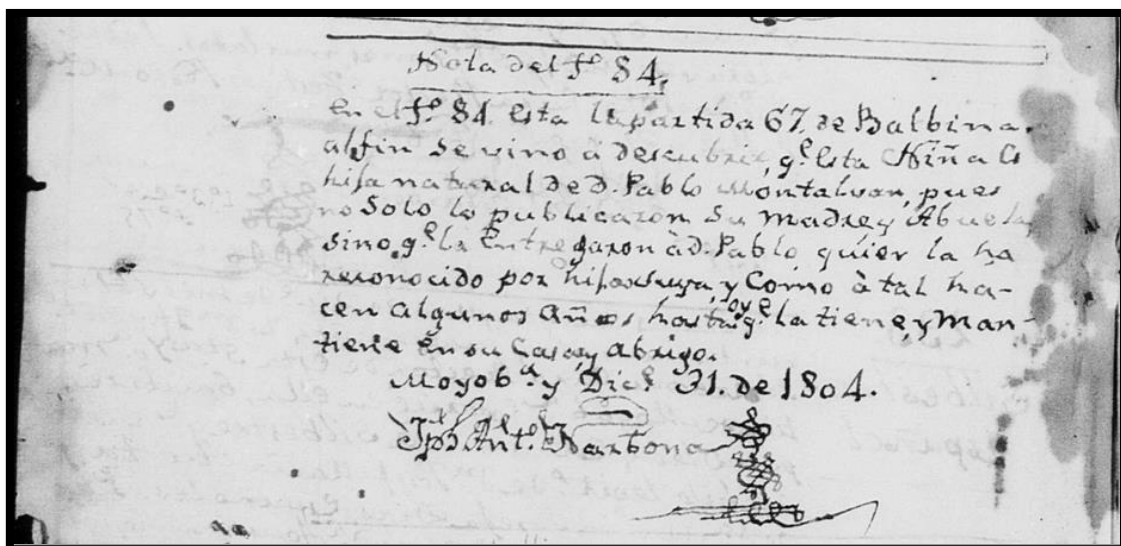 Nota del f.º 84.
En el f.º 84. esta la partida 67. de Balbina.
al fin se vino à descubrir, q.e esta Niña es
hija natural de d. Pablo Montalvan, pues
no solo lo publicaron su madre, y Abuela,
sino q.e la entregaron à d. Pablo quien la ha
reconocido por hija suya, y como à tal ha-
cen algunos años hasta oy q.e la tiene, y man-
tiene en su casa, y abrigo.
Moyob.a y Dic.e 31. de 1804.
Jph Ant.o Narbona